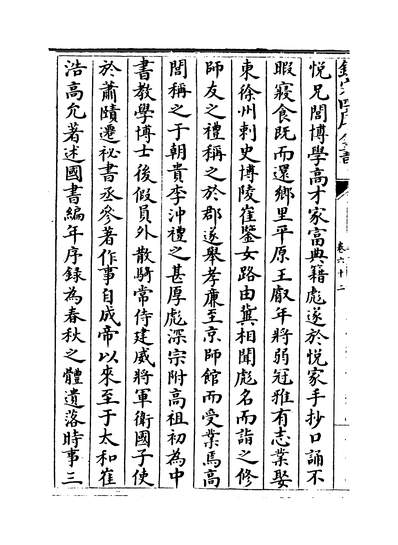 悦兄閭博學高才家富典籍彪遂於悦家手抄口誦不
暇寢食既而還鄉里平原王叡年將弱冠雅有志業娶
東徐州刺史博陵崔鑒女路由冀相聞彪名而詣之修
師友之禮稱之於郡遂舉孝廉至京師館而受業焉高
閭稱之于朝貴李沖禮之甚厚彪深宗附高祖初為中
書教學博士後假員外散騎常侍建威將軍衛國子使
於蕭賾遷祕書丞參著作事自成帝以來至于太和崔
浩高允著述國書編年序錄為春秋之體遺落時事三
卷六十二